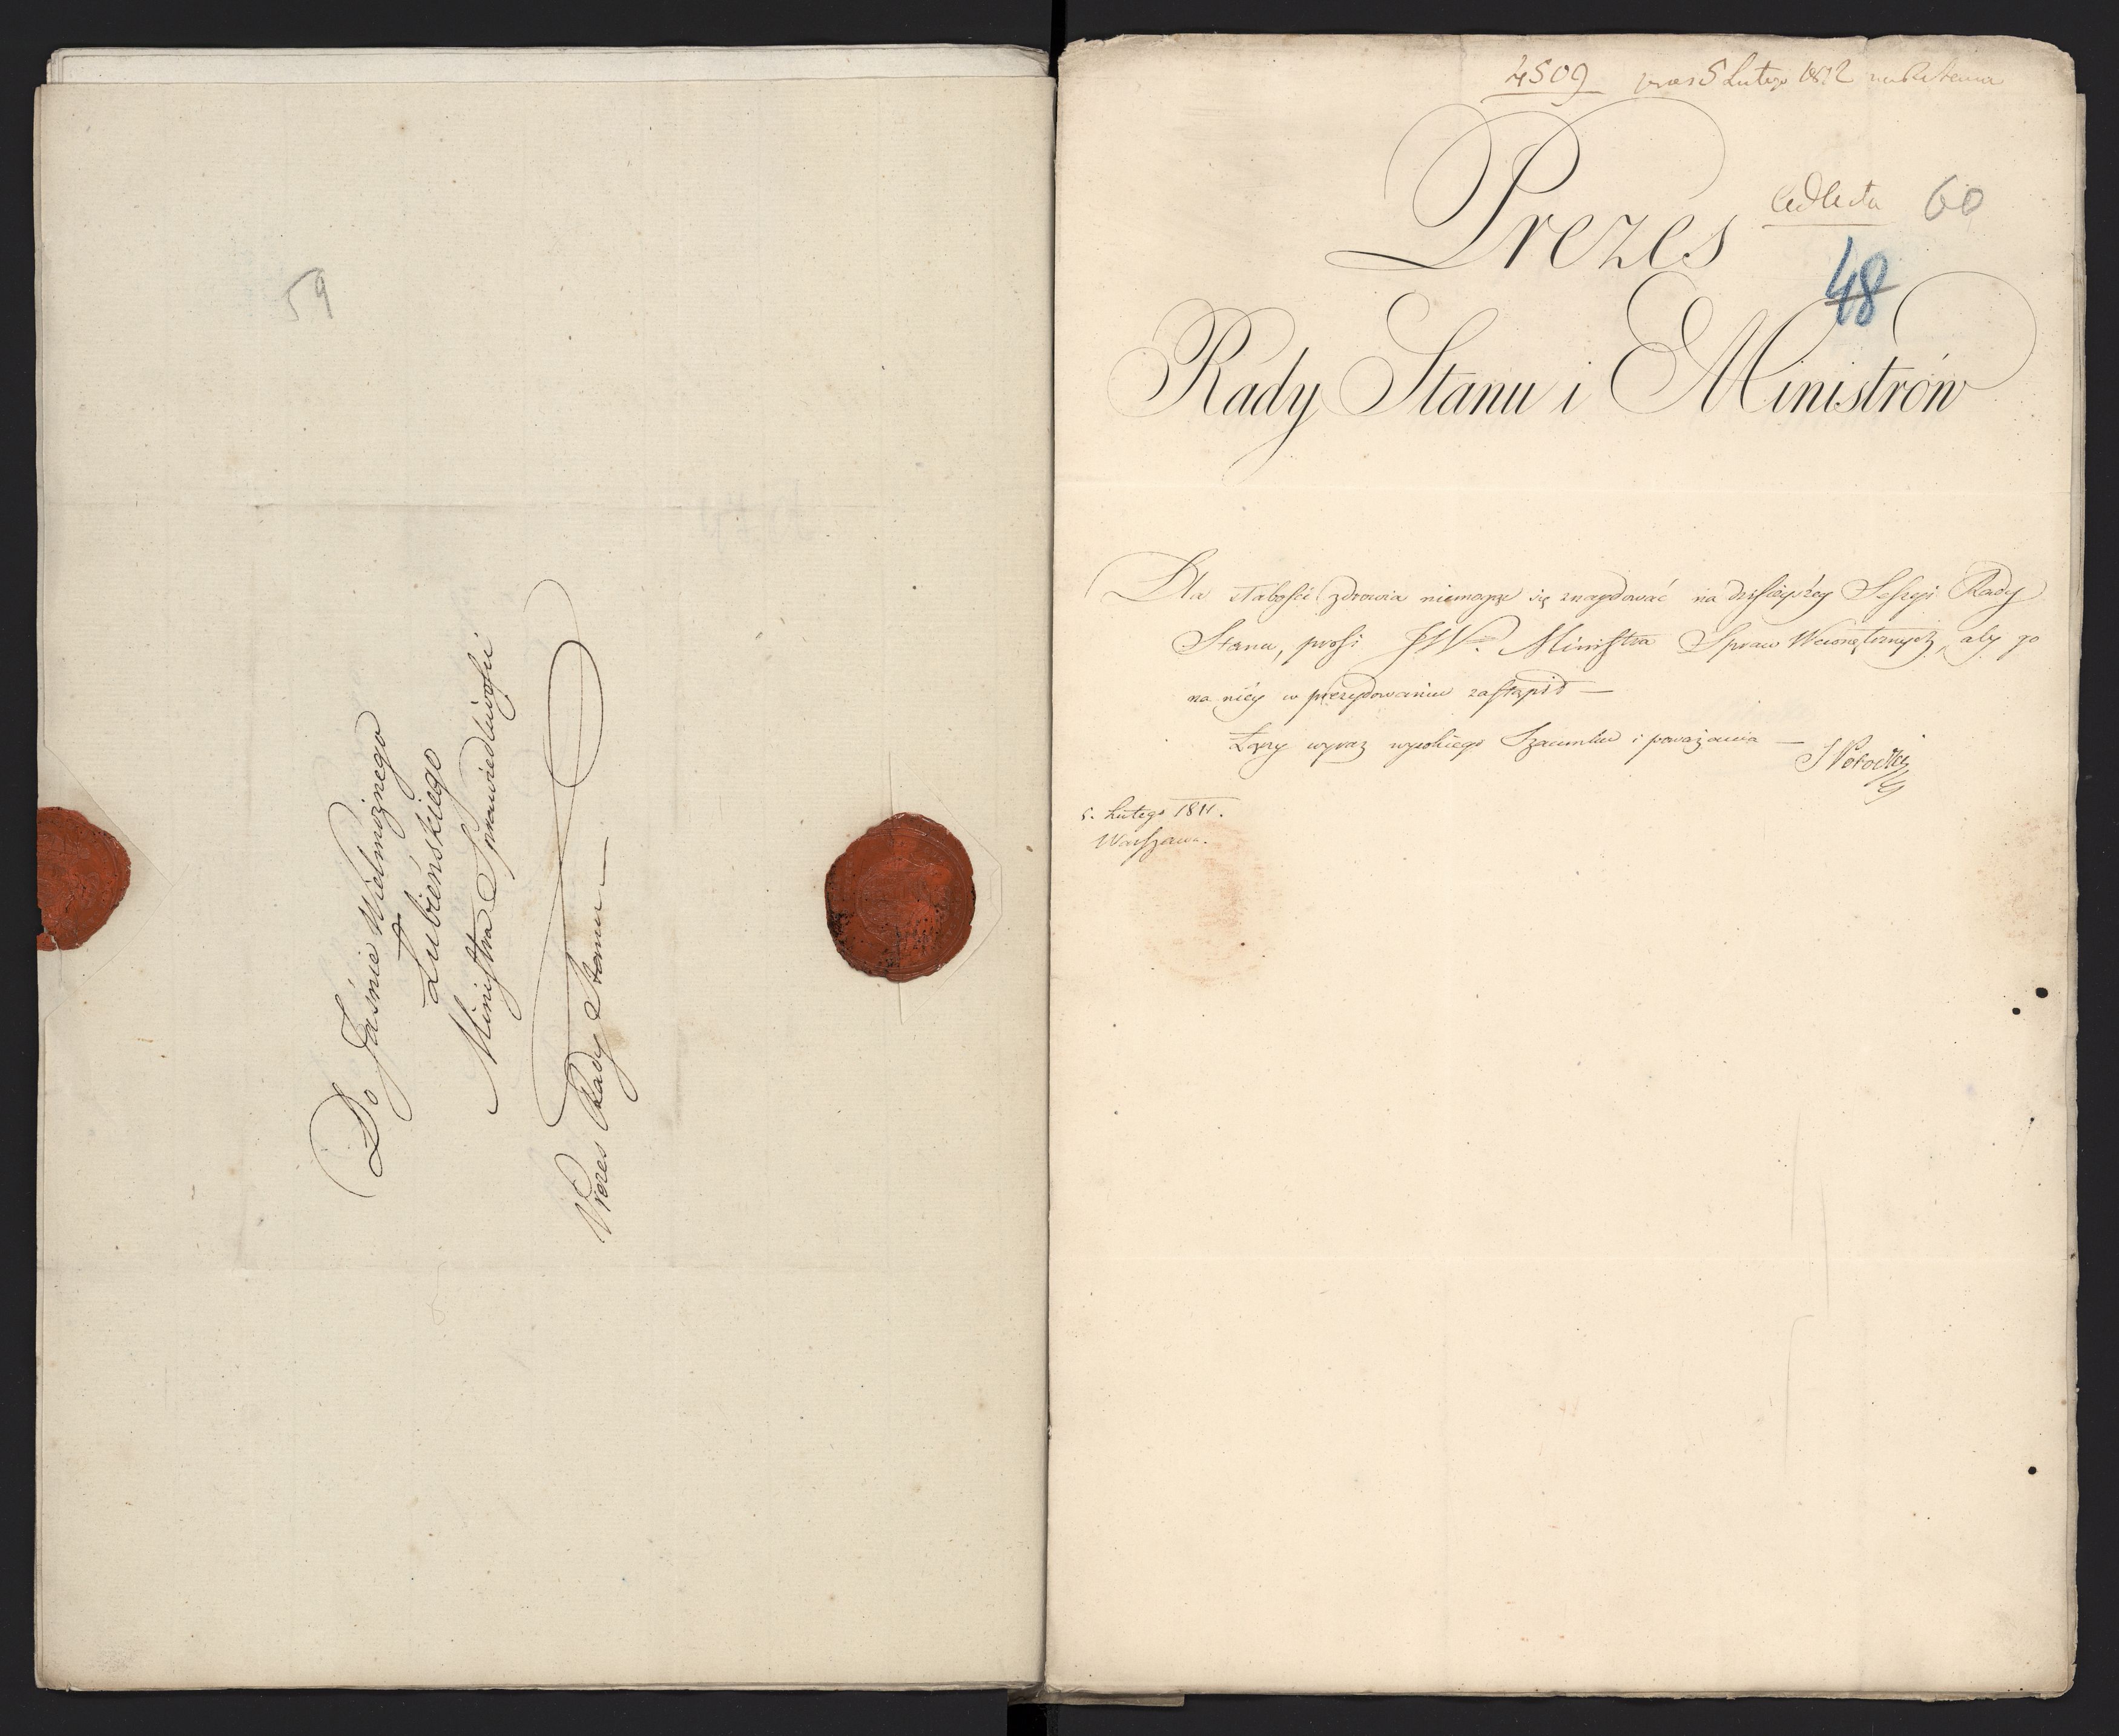 59
Do Jaśnie Wielmożnego
Łubieńskiego
Ministra Sprawiedliwości
Prezes Rady Stanu
4509 5 Lutego 1812
Prezes
60
48
Rady Stanu i Ministrów
Dla słabości zdrowia niemogąc się znaydować na dzisieyszey Sessyi Rady
Stanu, prosi JW. Ministra Spraw Wewnętrznych, aby go
na niéy w prezydowaniu zastąpił —
Łączy wyraz wysokiego Szacunku i poważania —
S Potocki
5. Lutego 1811.
Warszawa.